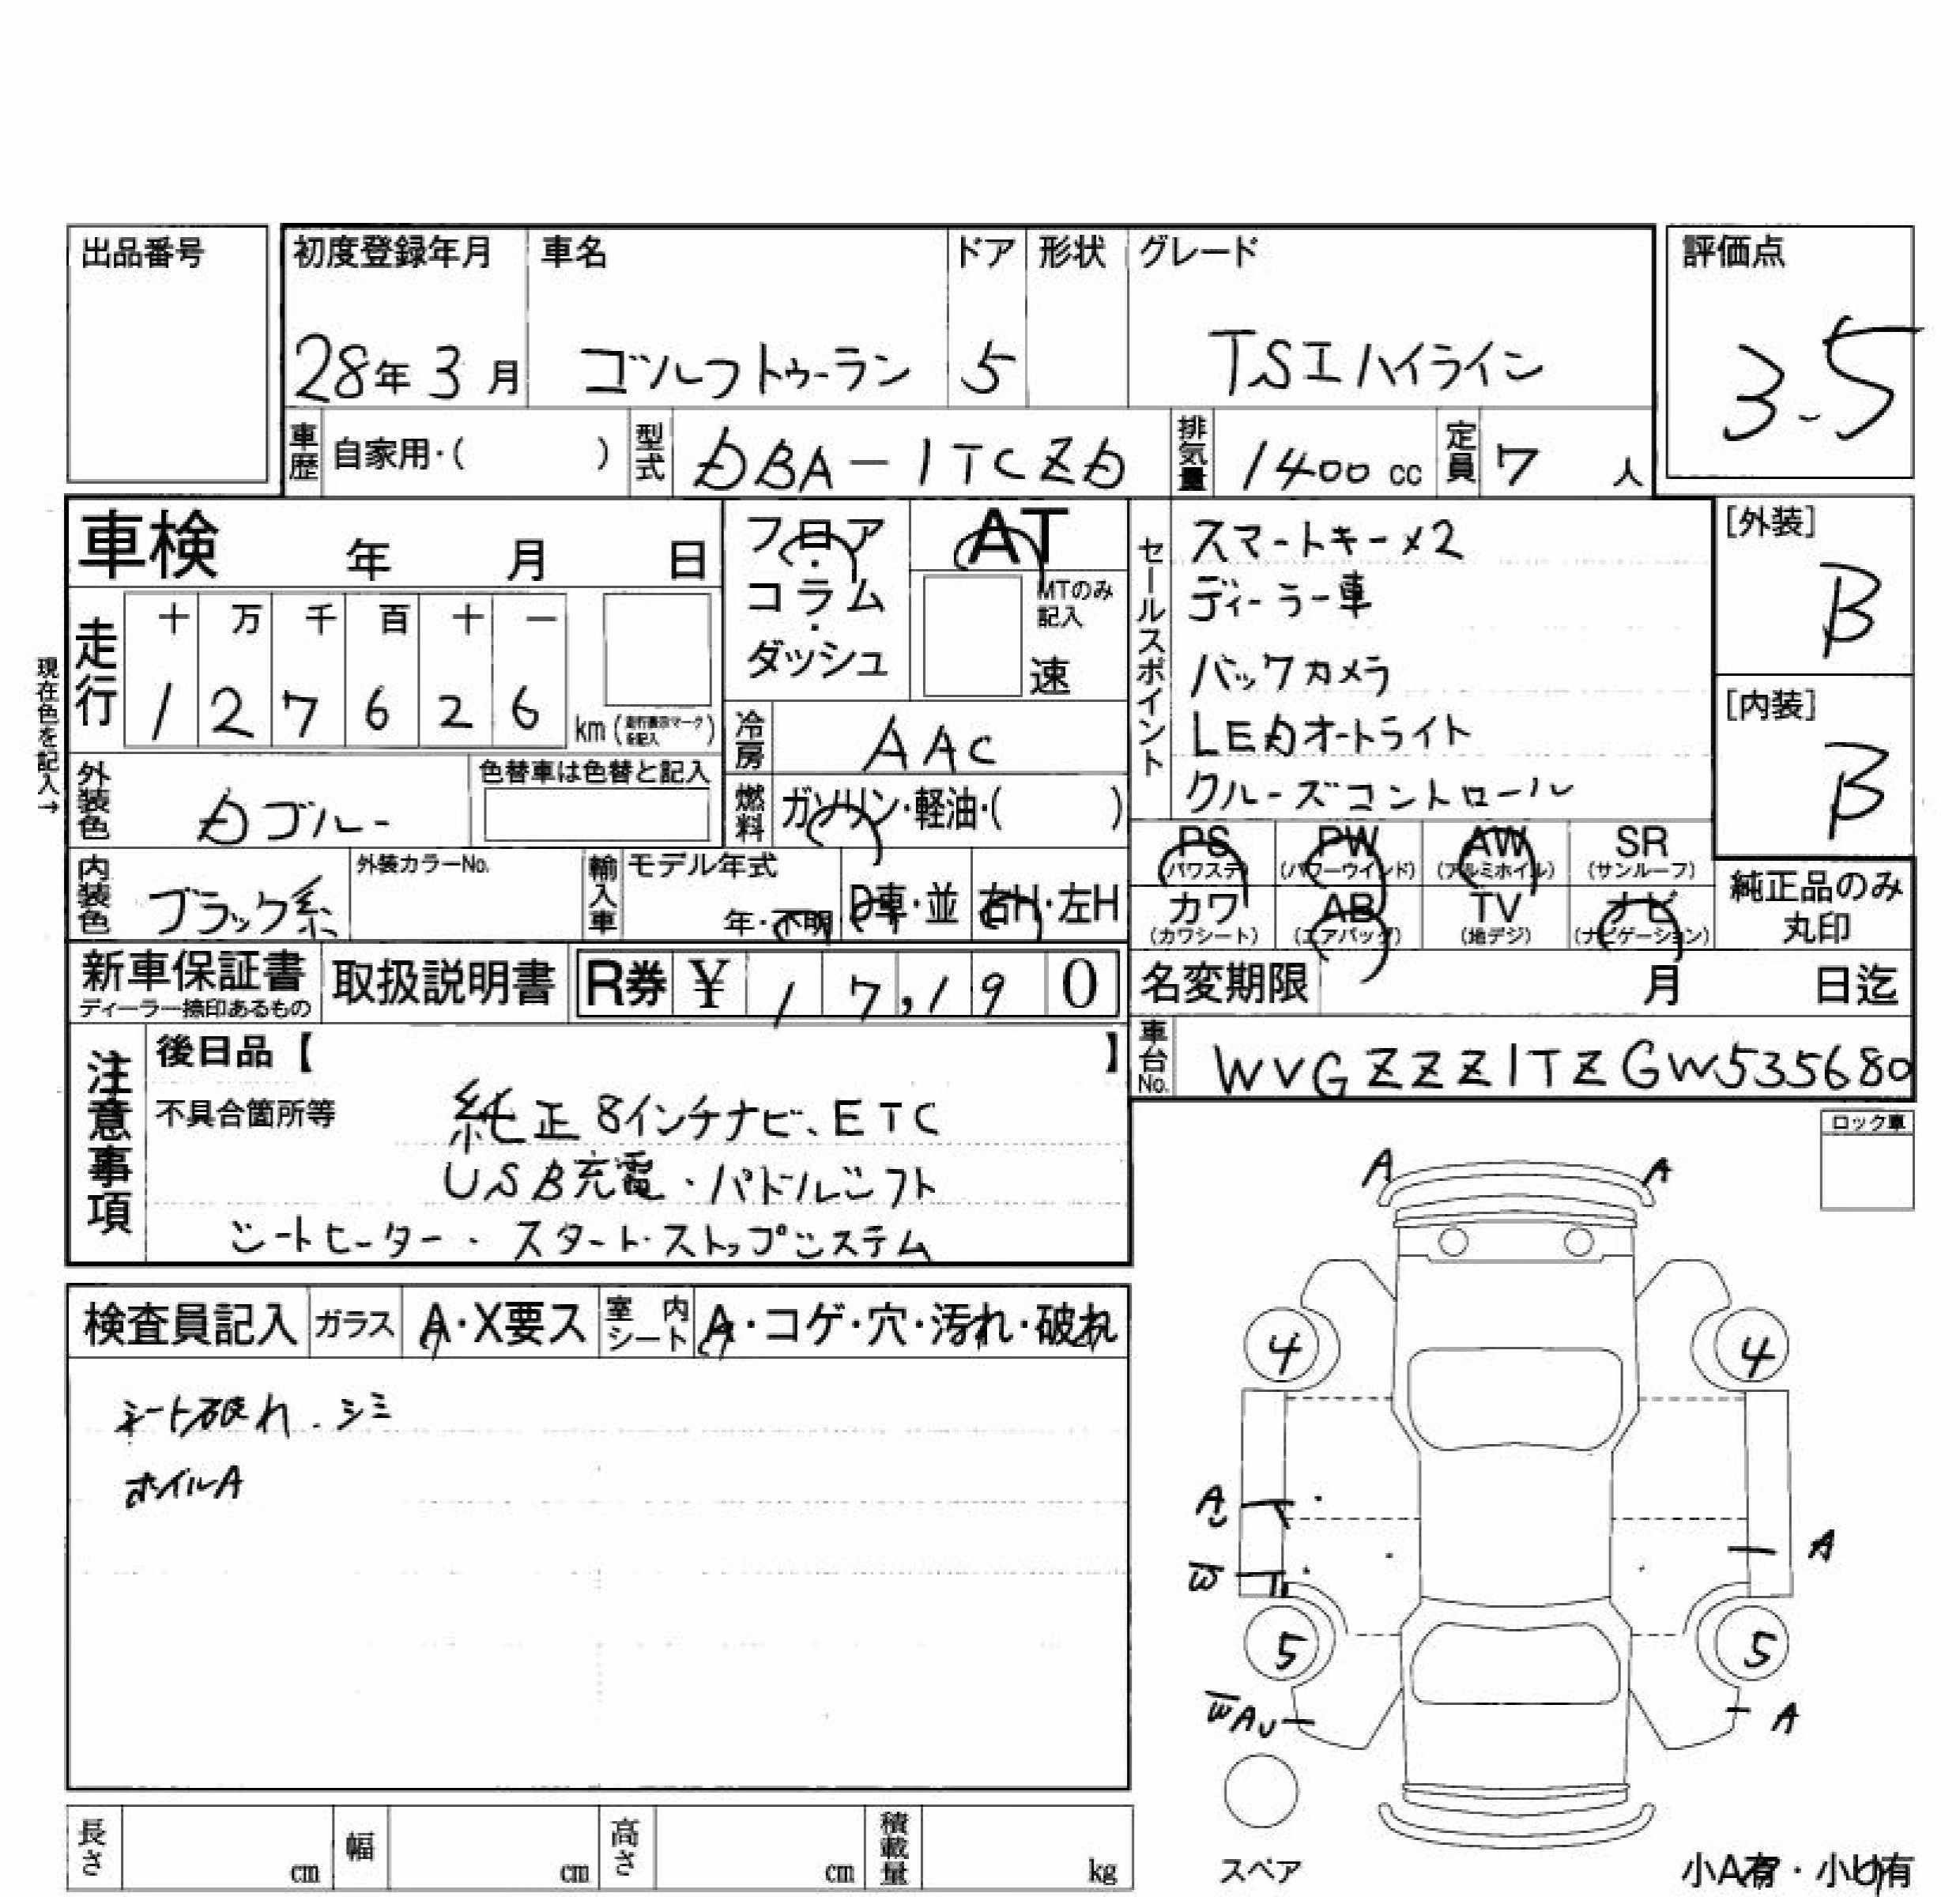 出品番号
初度登録年月 車名 ドア 形状 グレード
評価点
28年 3月 ゴルフトゥーラン 5 TSI ハイライン
3.5
車歴 自家用・( ) 型式 DBA-1TCZD 排気量 1400 cc 定員 7 人
車検 年 月 日
フロア・コラム・ダッシュ
AT
MTのみ記入
速
走行 十 万 千 百 十 一
1 2 7 6 2 6 km (走行表示マークを記入)
現在色を記入→
冷房 AAC
外装色
色替車は色替と記入
燃料 ガソリン・軽油・( )
内装色 ブラック系
外装カラーNo.
輸入車 モデル年式
年・不明 D車・並 右H・左H
セールスポイント
スマートキー×2
ディーラー車
バックカメラ
LEDオートライト
クルーズコントロール
[外装]
B
[内装]
B
PS (パワステ) PW (パワーウインド) AW (アルミホイル) SR (サンルーフ)
カワ (カワシート) AB (エアバッグ) TV (地デジ) ナビ (ナビゲーション)
純正品のみ
丸印
新車保証書
ディーラー捺印あるもの
取扱説明書
R券 ¥ 1 7,1 9 0
名変期限 月 日迄
車台No. WVGZZZ1TZGW535680
注意事項
後日品【 】
不具合箇所等
純正8インチナビ、ETC
USB充電・パドルシフト
シートヒーター・スタート・ストップシステム
ロック車
検査員記入 ガラス A・X要ス 室内シート A・コゲ・穴・汚れ・破れ
シート破れ、シミ
ホイルA
A A
4 4
A
A
W
5 5
A
スペア
長さ cm 幅 cm 高さ cm 積載量 kg
小A有・小U有